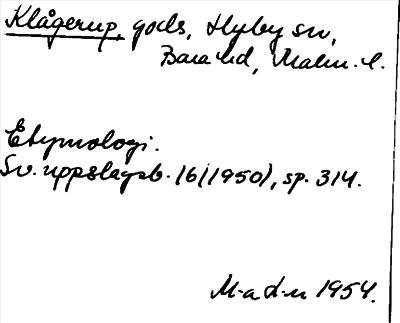 Klågerup, gods, Hyby sn,
Bara hd, Malm. l.
Etymologi.
Sv. uppslagsb. 16 (1950), sp. 314.
M-a d-n 1954.